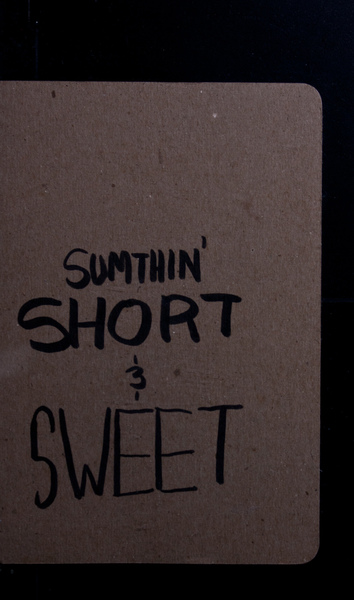 SUMTHIN'
SHORT
&
SWEET